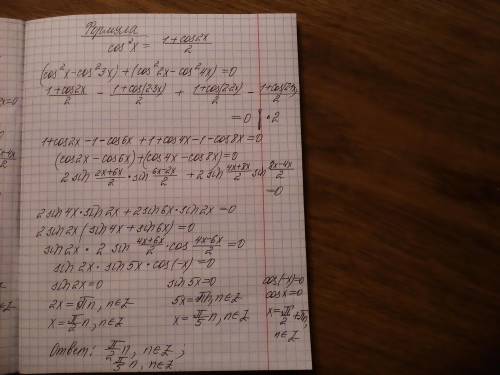 Формула
cos²x = (1+cos2x)/2
(cos²x-cos²3x)+(cos²2x-cos²4x)=0
(1+cos2x)/2 - (1+cos(2·3x))/2 + (1+cos(2·2x))/2 -
=0 | ·2
1+cos2x-1-cos6x+1+cos4x-1-cos8x=0
(cos2x-cos6x)+(cos4x-cos8x)=0
2 sin (2x+6x)/2 · sin (6x-2x)/2 + 2 sin (4x+8x)/2 sin (8x-4x)/2
=0
2 sin 4x · sin 2x + 2 sin 6x · sin 2x = 0
2 sin 2x (sin 4x + sin 6x) = 0
sin 2x · 2 sin (4x+6x)/2 · cos (4x-6x)/2 = 0
sin 2x · sin 5x · cos(-x) = 0
sin 2x = 0 sin 5x = 0 cos(-x)=0
2x = πn, n∈Z 5x = πn, n∈Z cosx=0
x = π/2 n, n∈Z x = π/5 n, n∈Z x = π/2 + πn,
n∈Z
Ответ: π/2 n, n∈Z ;
π/5 n, n∈Z